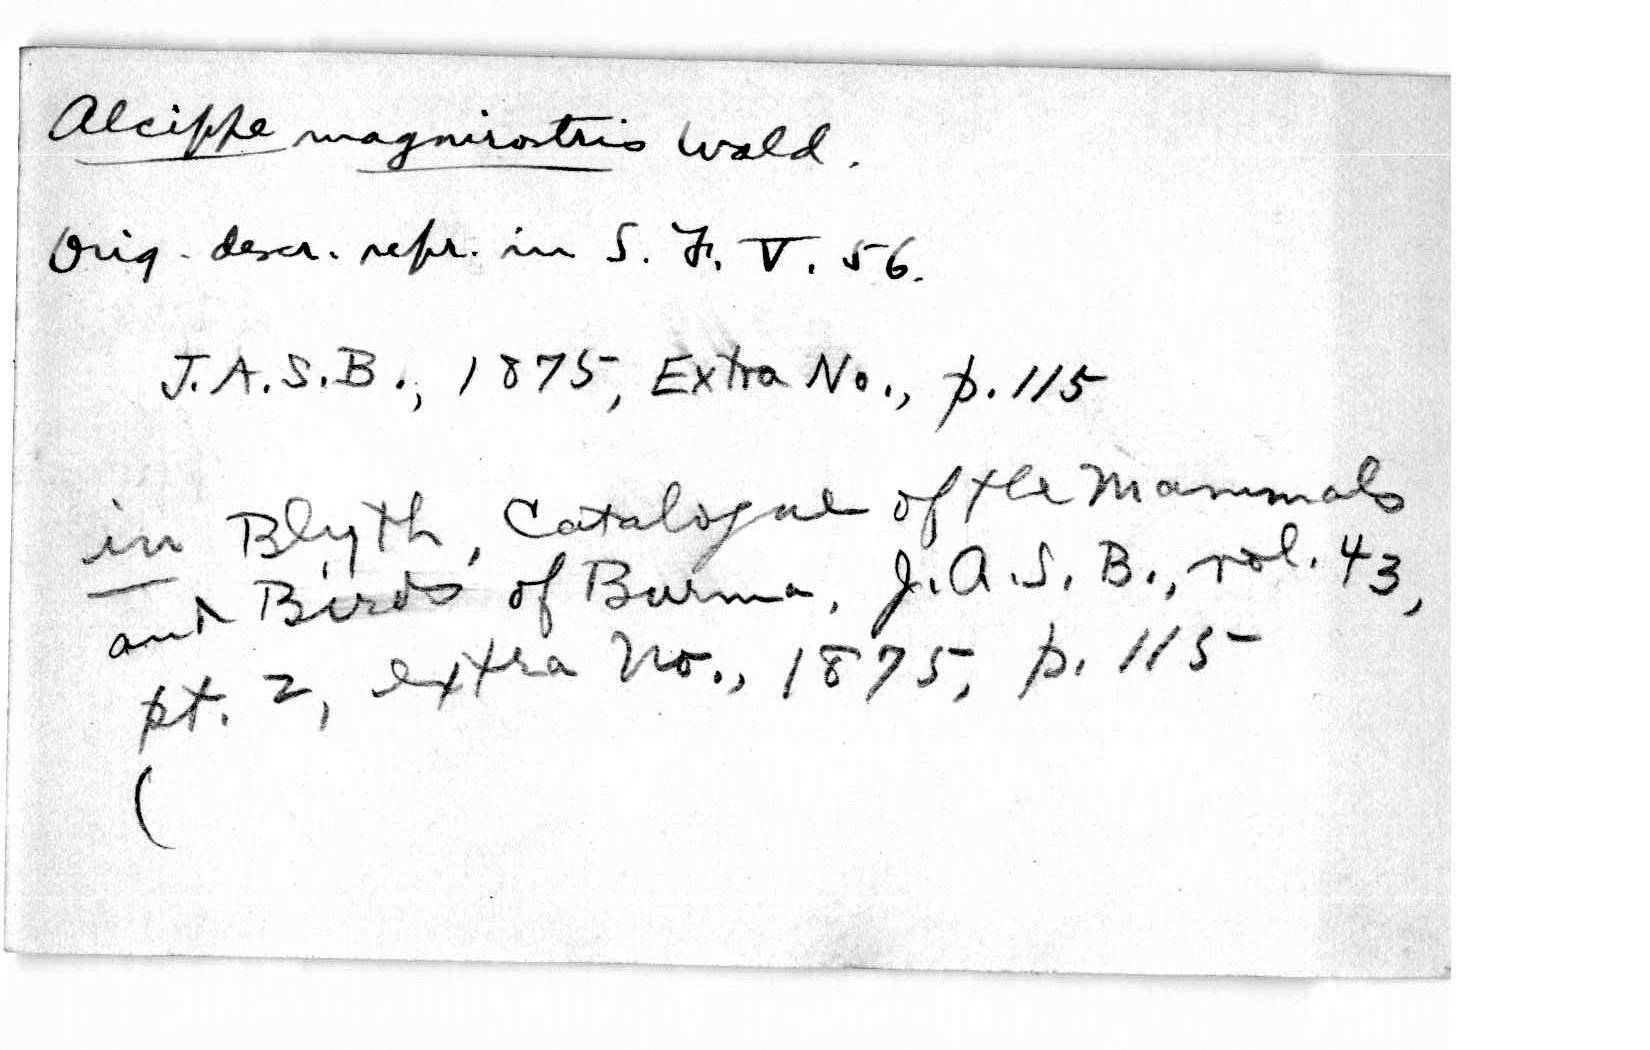 Alcippe magnirostris Wald.
Orig. descr. repr. in S. F. V. 56.
J.A.S.B., 1875, Extra No., p. 115
in Blyth, Catalogue of the Mammals
and Birds of Burma, J.A.S.B., vol. 43,
pt. 2, extra No., 1875, p. 115
(